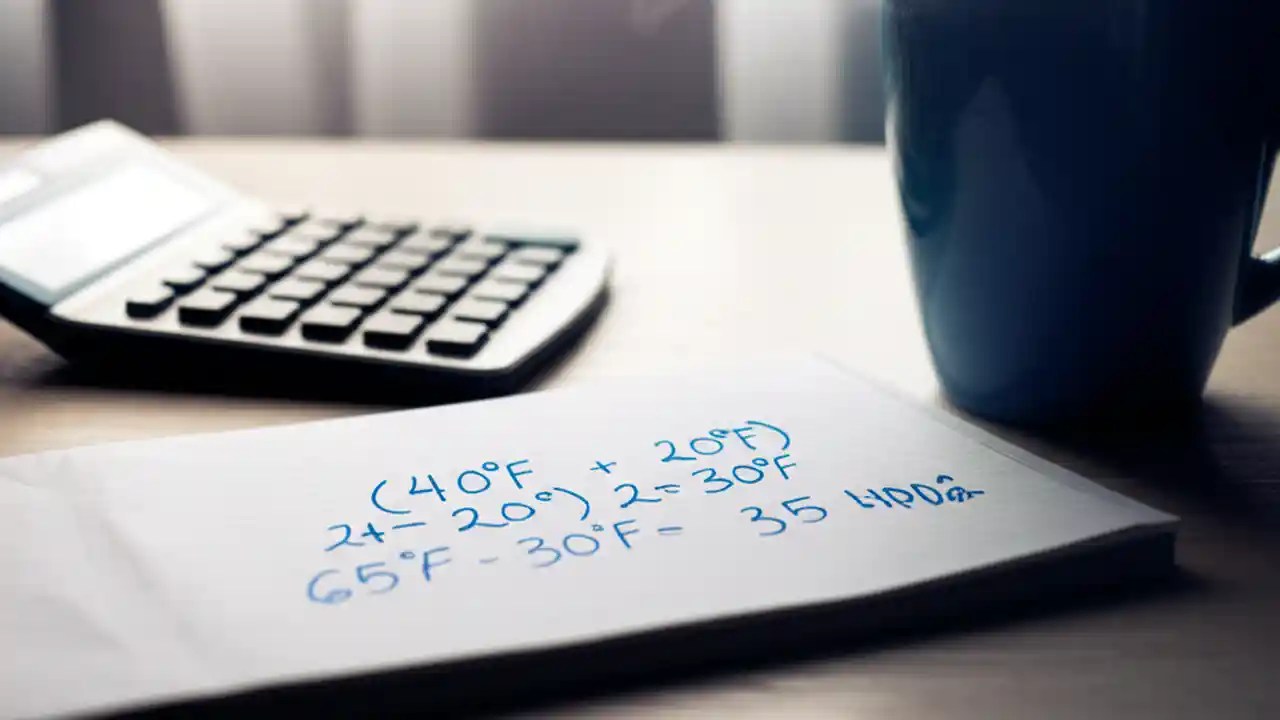 (40°F + 20°F)
2+- 20°) 2=30°F
65°F - 30°F= 35